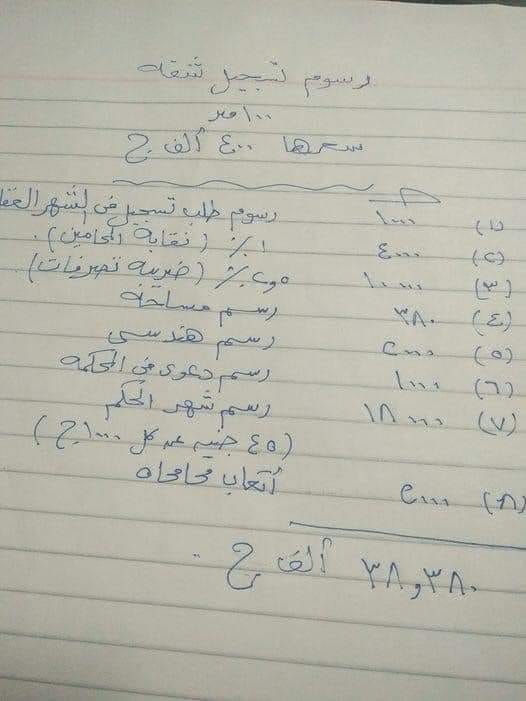 رسوم تسجيل شقه
١٠٠ متر
سعرها ٤٠٠ ألف ج
(١) ١٠٠٠ رسوم طلب تسجيل في الشهر العقا
(٢) ٤٠٠٠ ١٪ (نقابة المحامين).
(٣) ١٠٠٠٠ ٢,٥٪ (ضريبة تصرفات).
(٤) ٣٨٠ رسم مساحة
(٥) ٢٠٠٠ رسم هندسى
(٦) ١٠٠٠ رسم دعوى في المحكمه
(٧) ١٨٠٠٠ رسم شهر الحكم
(٤٥ جنيه عن كل ١٠٠٠ ج)
(٨) ٢٠٠٠ أتعاب محاماه
٣٨,٣٨٠ ألف ج